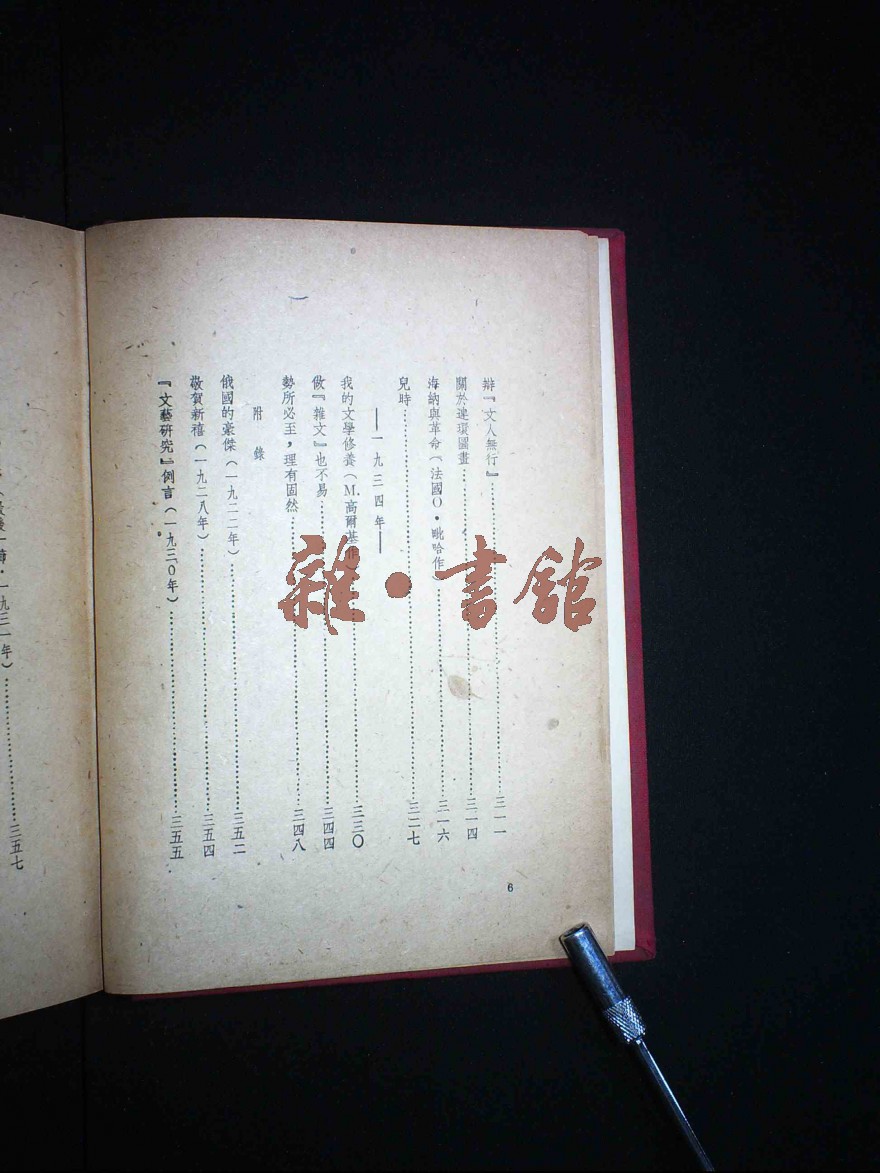 辯『文人無行』…………三一一
關於連環圖畫…………三一四
海納與革命(法國O·毗哈作)…………三一六
兒時…………三二七
——一九三四年——
我的文學修養(M.高爾基作)…………三三〇
做『雜文』也不易…………三四四
勢所必至,理有固然…………三四八
附錄
俄國的豪傑(一九二二年)…………三五二
敬賀新禧(一九二八年)…………三五四
『文藝研究』例言(一九三〇年)…………三五五
·一九三一年)…………三五七
6
雜·書館